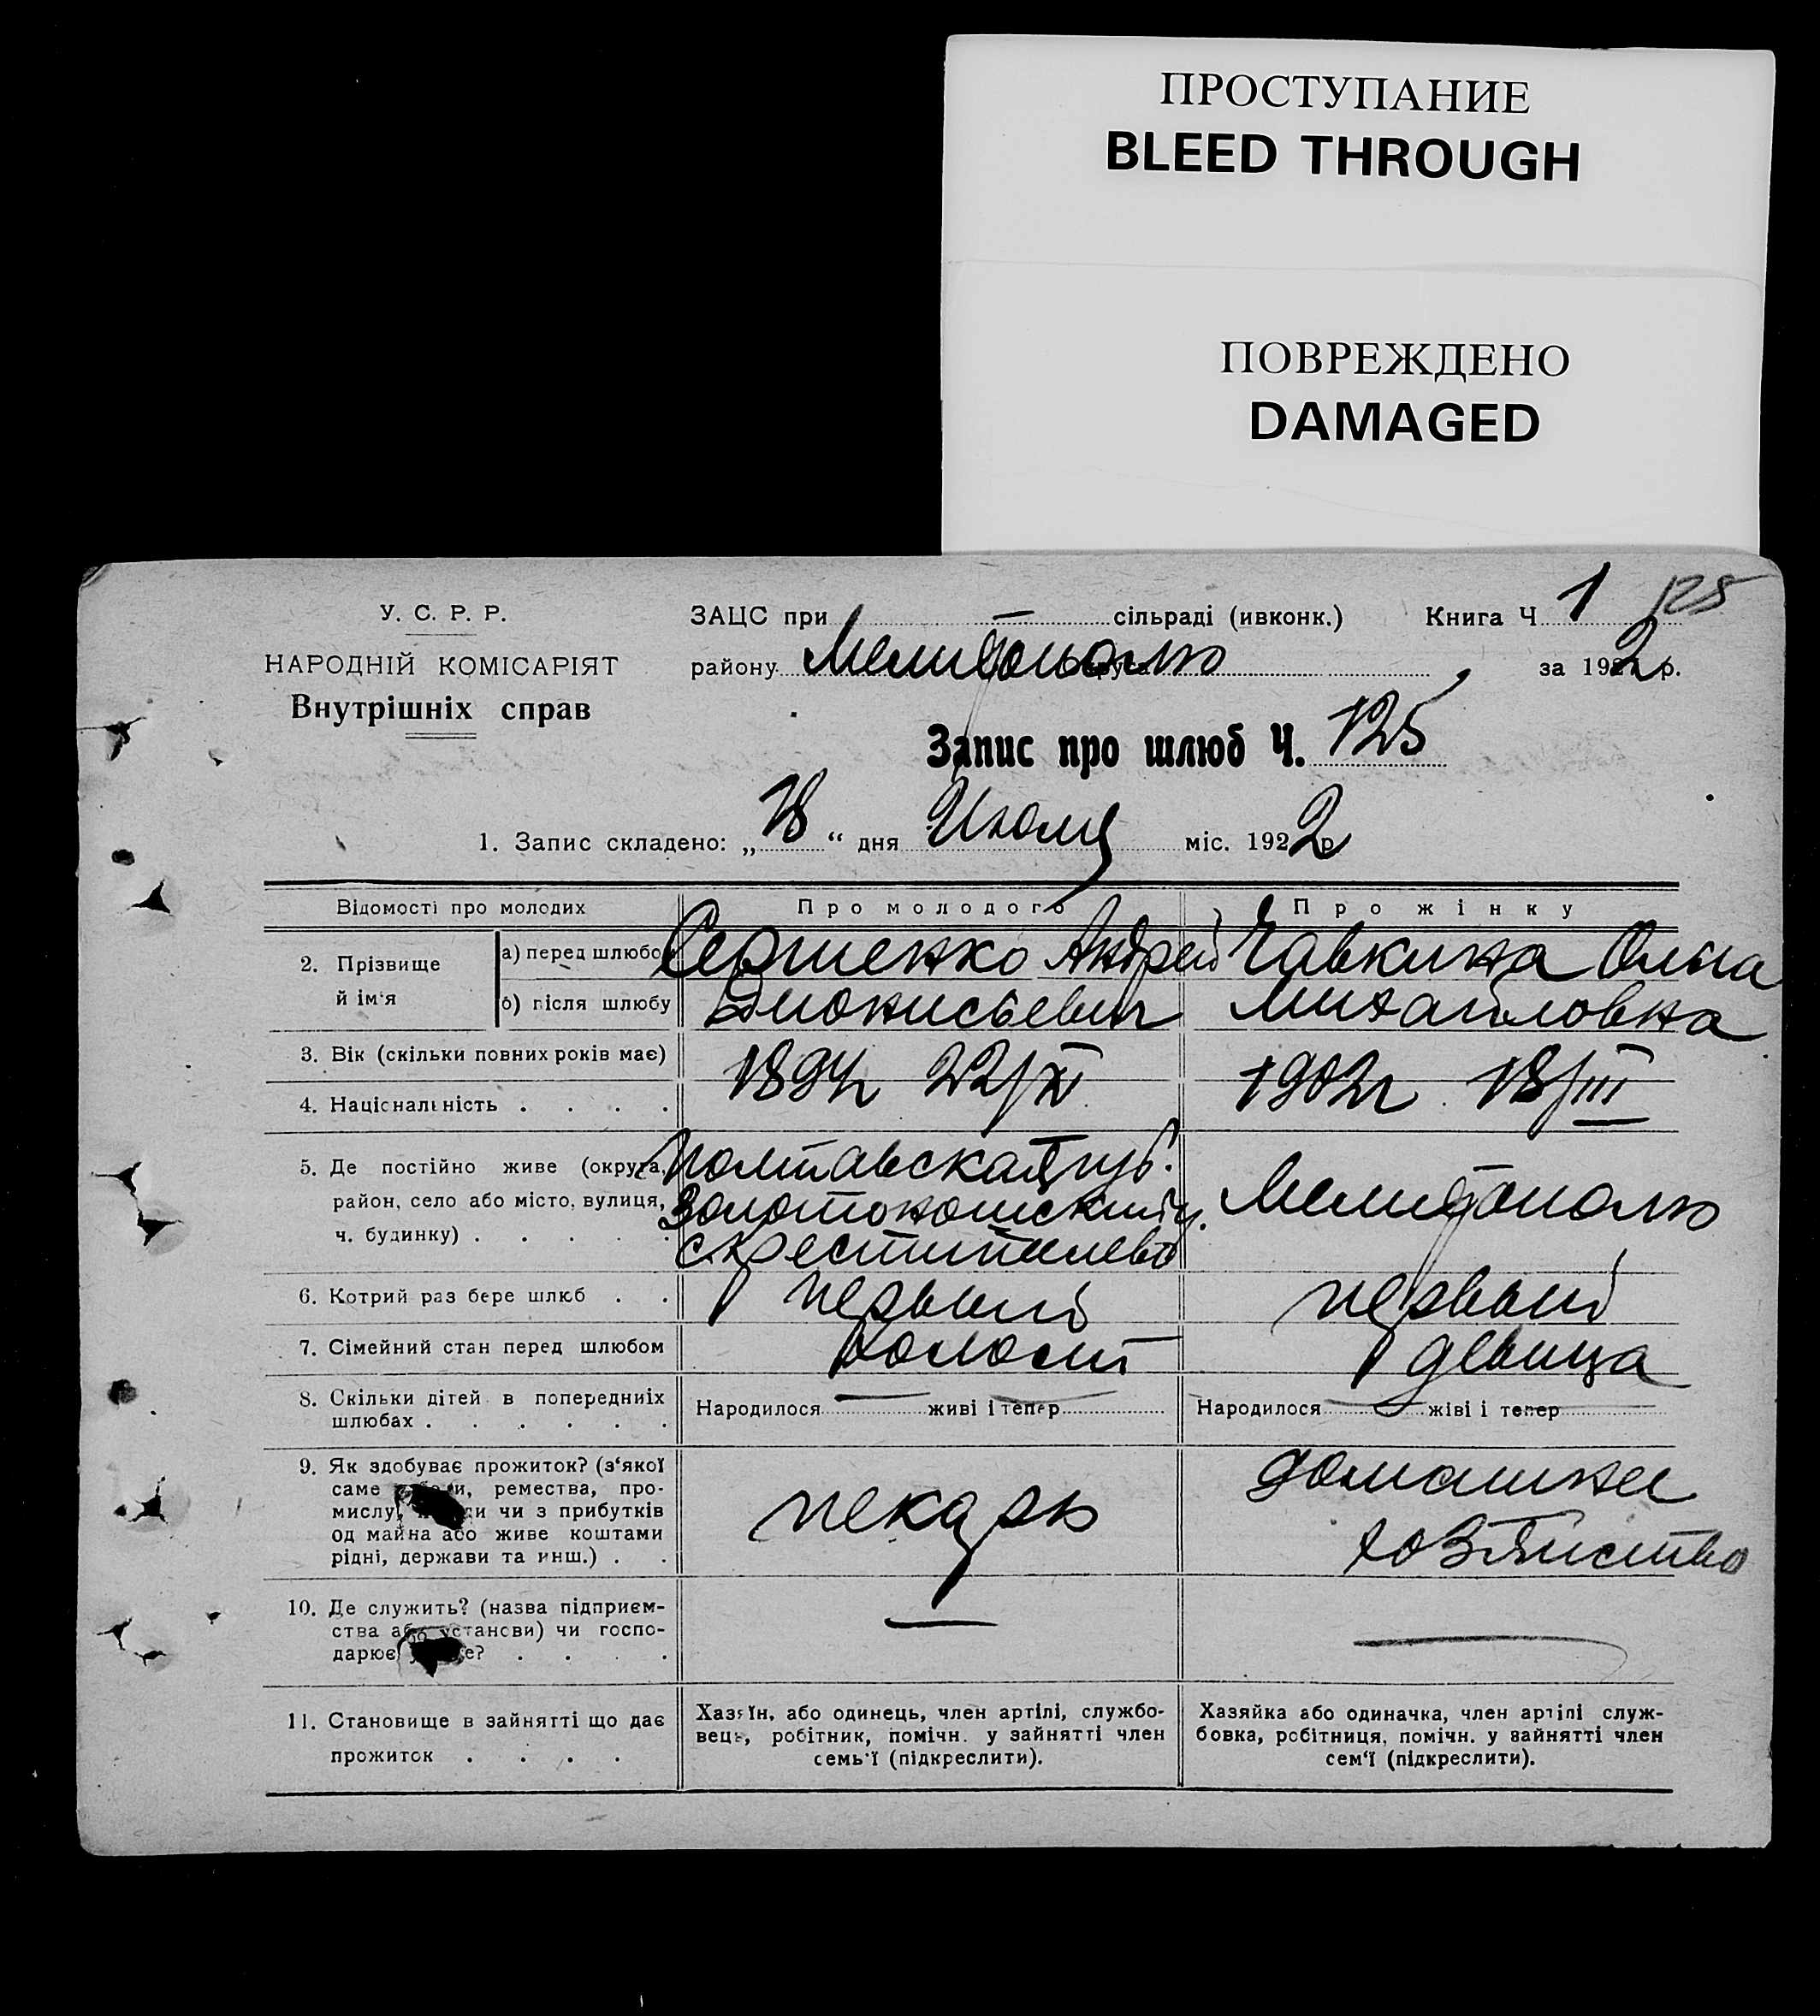 ПРОСТУПАНИЕ
BLEED THROUGH
ПОВРЕЖДЕНО
DAMAGED
У. С. Р. Р.
НАРОДНІЙ КОМІСАРІЯТ
Внутрішніх справ
ЗАЦС при — сільраді (ивконк.) Книга Ч 1 125
району Мелитополь за 1922 р.
Запис про шлюб Ч. 125
1. Запис складено: „ 18 “ дня Июля міс. 1922 р
Відомості про молодих
Про молодого
Про жінку
2. Прізвище й ім'я
а) перед шлюбом
б) після шлюбу
Андрей
Дионисьевич
Чавкина
Михайловна
3. Вік (скільки повних років має)
4. Національність . . . .
1894г 22/XI
1902г 18/III
5. Де постійно живе (округа,
район, село або місто, вулиця,
ч. будинку) . . . . .
Полтавская губ.
Золотоношский у.
Мелитополь
6. Котрий раз бере шлюб . .
первый
первый
7. Сімейний стан перед шлюбом
холост
девица
8. Скільки дітей в попередниіх
шлюбах . . . . . .
Народилося — живі і тепер —
Народилося — жіві і тепер —
9. Як здобуває прожиток? (з'якої
саме , ремества, про-
мислу, чи з прибутків
од майна або живе коштами
рідні, держави та инш.) . .
пекарь
домашнее
хозяйство
10. Де служить? (назва підприєм-
ства або установи) чи госпо-
дарює ? . . . .
—
—
11. Становище в зайнятті що дає
прожиток . . . .
Хазяїн, або одинець, член артілі, службо-
вець, робітник, помічн. у зайнятті член
семь'ї (підкреслити).
Хазяйка або одиначка, член артілі служ-
бовка, робітниця, помічн. у зайнятті член
сем'ї (підкреслити).